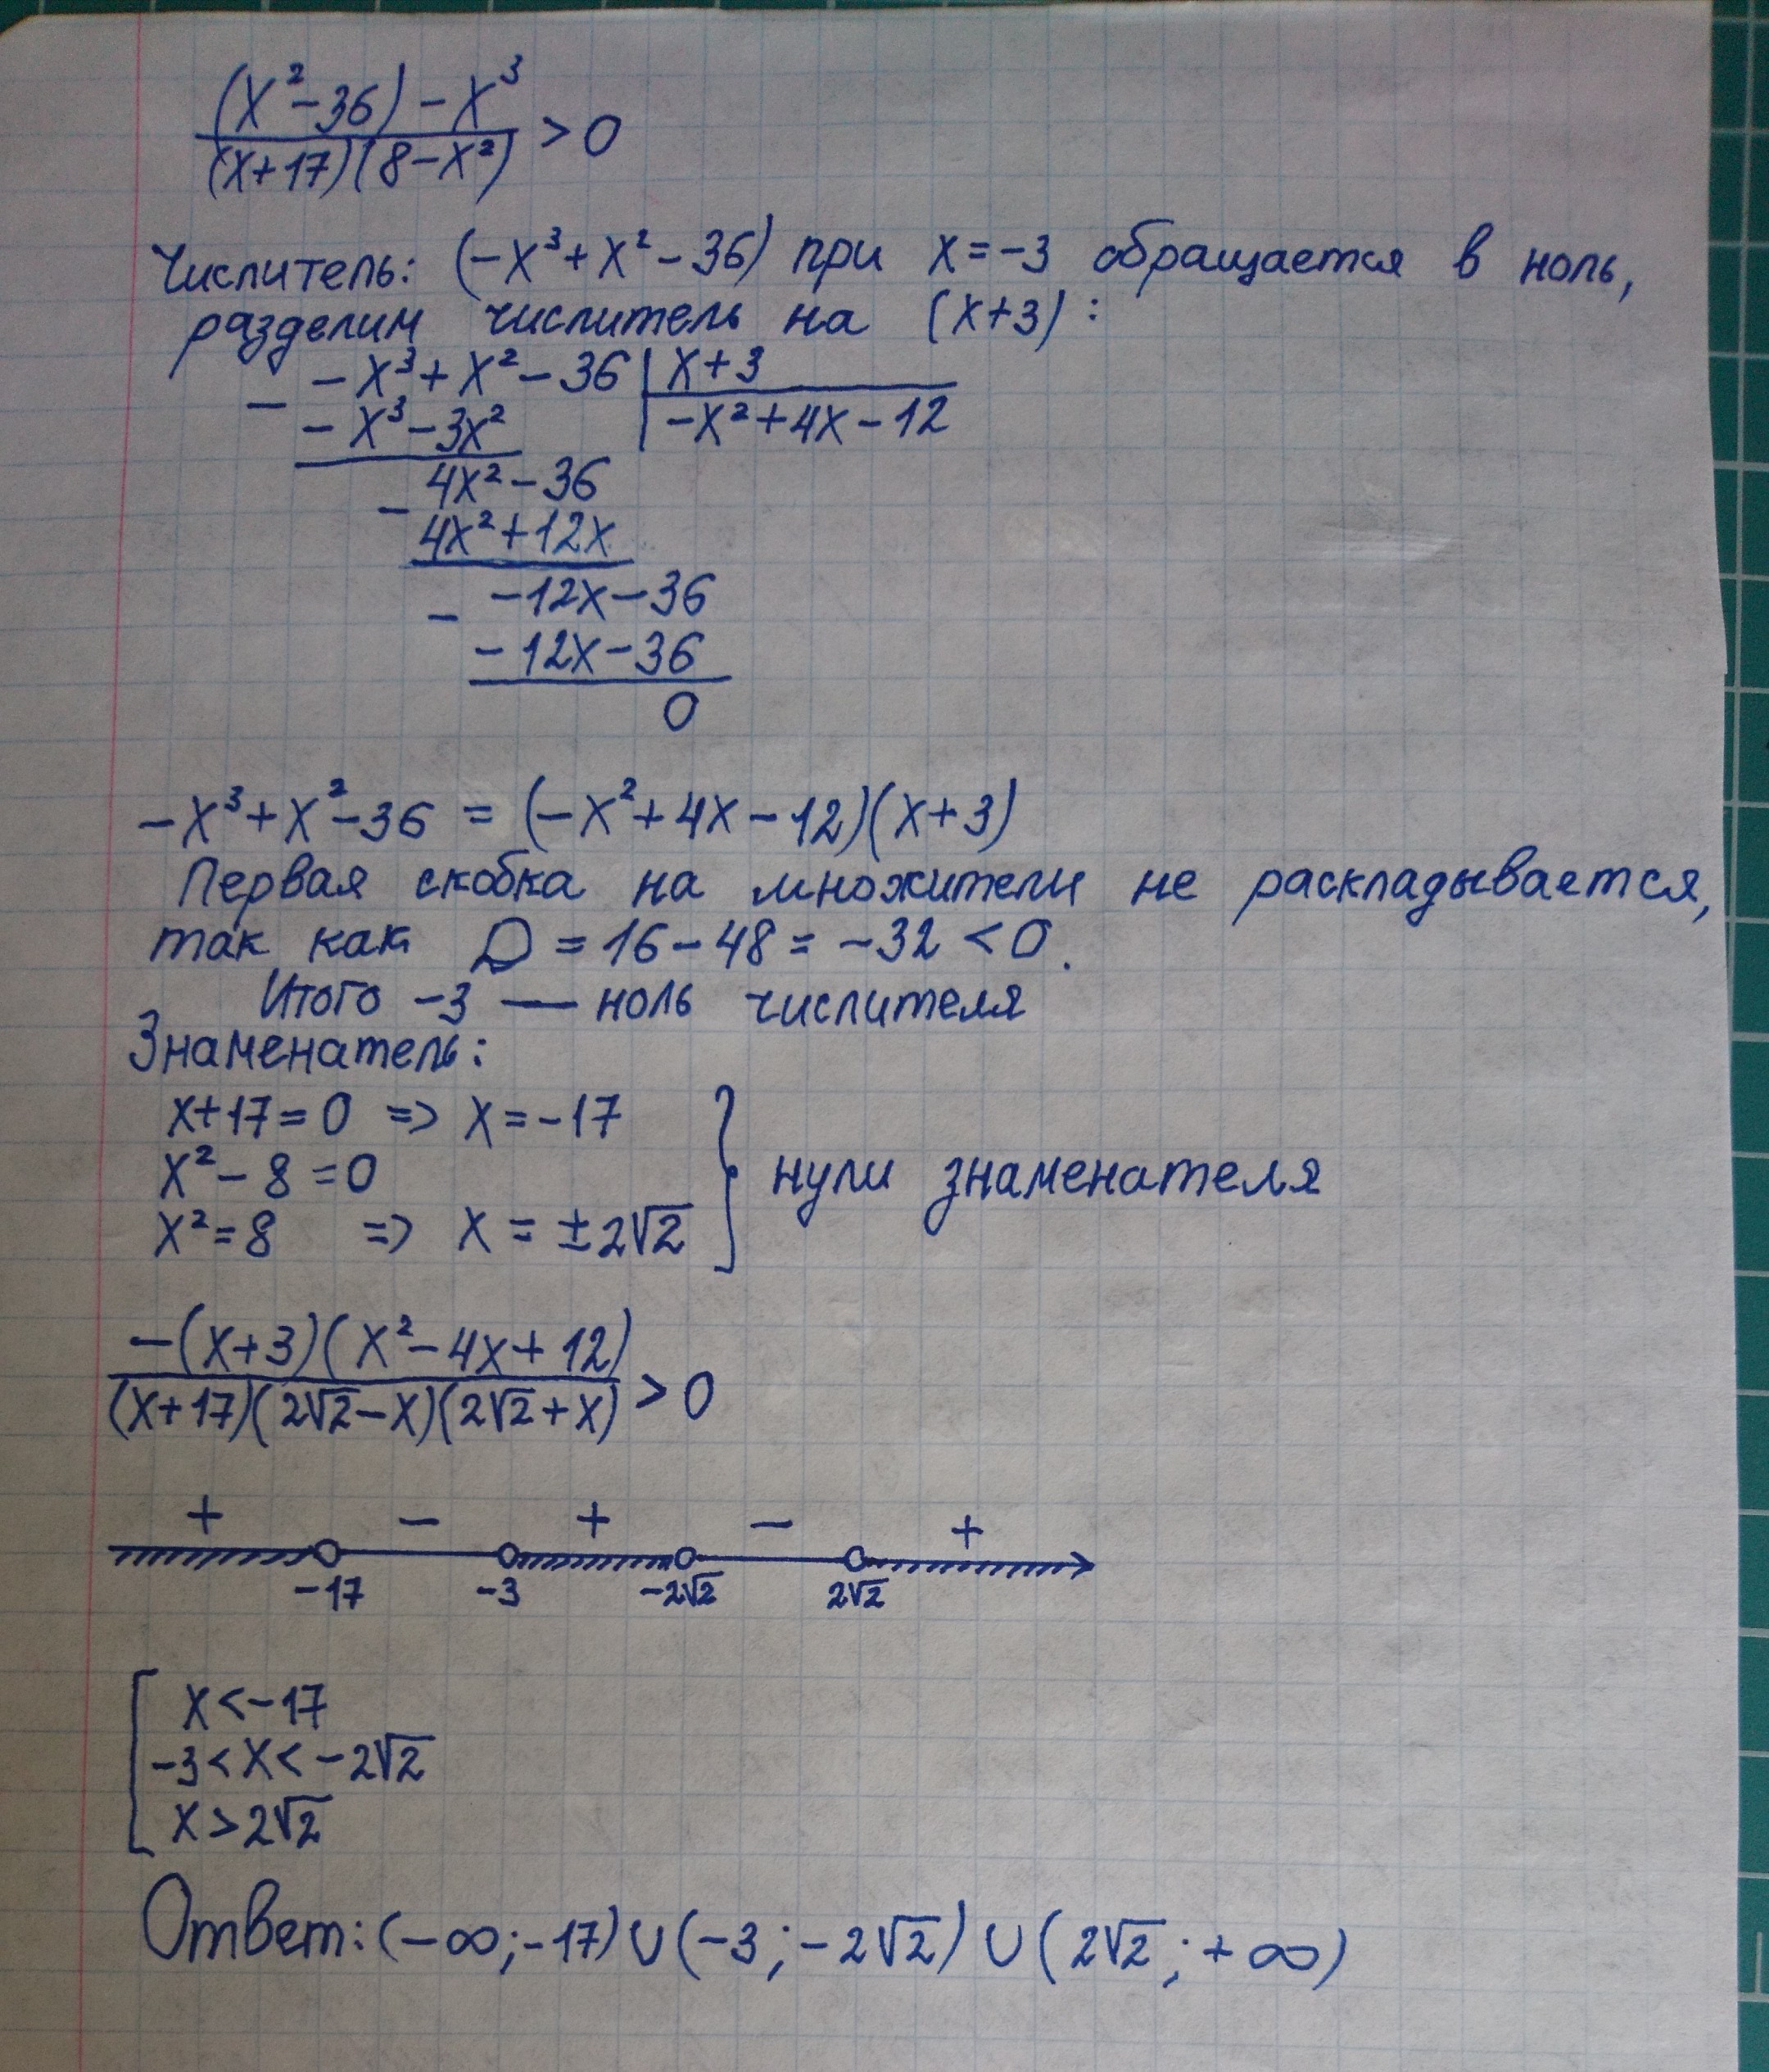 (x²-36)-x³
(x+17)(8-x²) >0
Числитель: (-x³+x²-36) при x=-3 обращается в ноль,
разделим числитель на (x+3):
- -x³+x²-36 | x+3
-x³-3x² | -x²+4x-12
- 4x²-36
4x²+12x
- -12x-36
-12x-36
0
-x³+x²-36 = (-x²+4x-12)(x+3)
Первая скобка на множители не раскладывается,
так как D=16-48=-32<0.
Итого -3 — ноль числителя
Знаменатель:
x+17=0 => x=-17
x²-8=0
x²=8 => x=±2√2
} нули знаменателя
-(x+3)(x²-4x+12)
(x+17)(2√2-x)(2√2+x) >0
+ - + - +
-17 -3 -2√2 2√2
[ x<-17
-3<x<-2√2
x>2√2
Ответ: (-∞;-17)∪(-3;-2√2)∪(2√2;+∞)